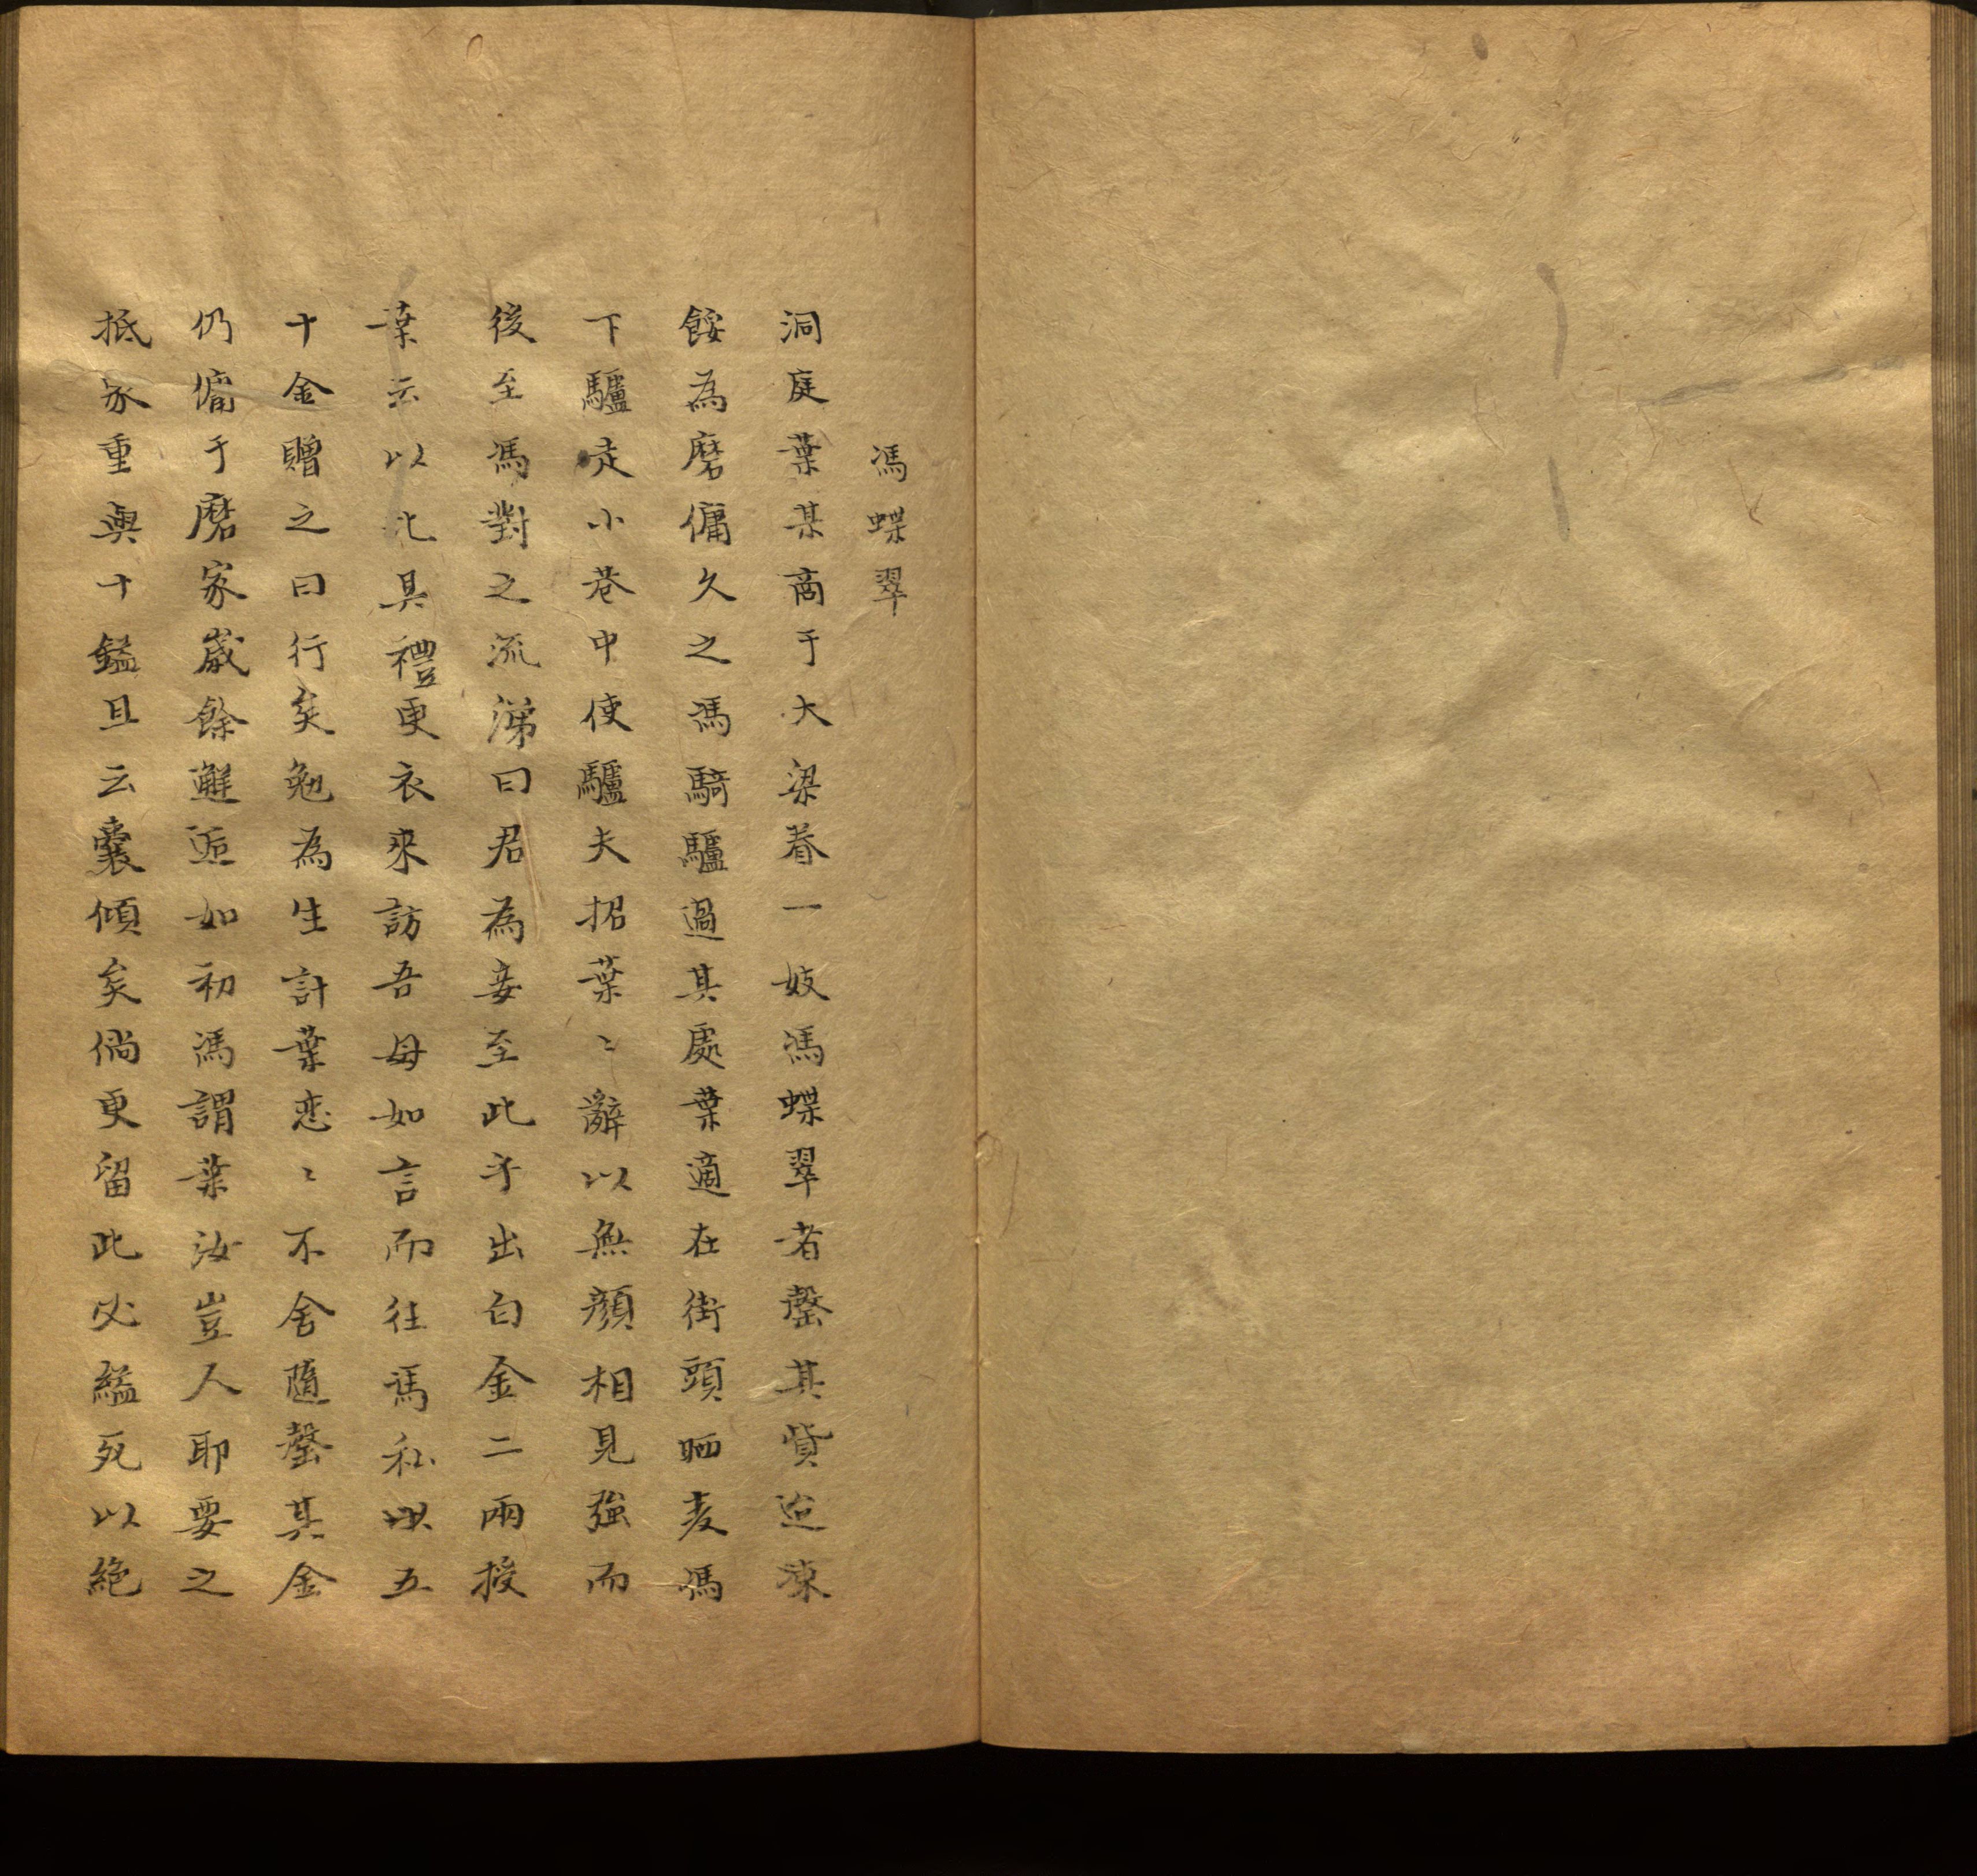 馮蝶翠
洞庭葉某商于大梁眷一妓馮蝶翠者罄其貲迨凍
餒為磨傭久之馮騎驢過其處葉適在街頭晒麦馮
下驢走小巷中使驢夫招葉〻辭以無顔相見強而
後至馮對之流涕曰君為妾至此乎出白金二兩授
葉云以此具禮更衣來訪吾母如言而往馮私以五
十金贈之曰行矣勉為生計葉恋〻不舍隨罄其金
仍傭于磨家歲餘邂逅如初馮謂葉汝豈人耶要之
抵家重與十鎰且云囊傾矣倘更留此必縊死以絶